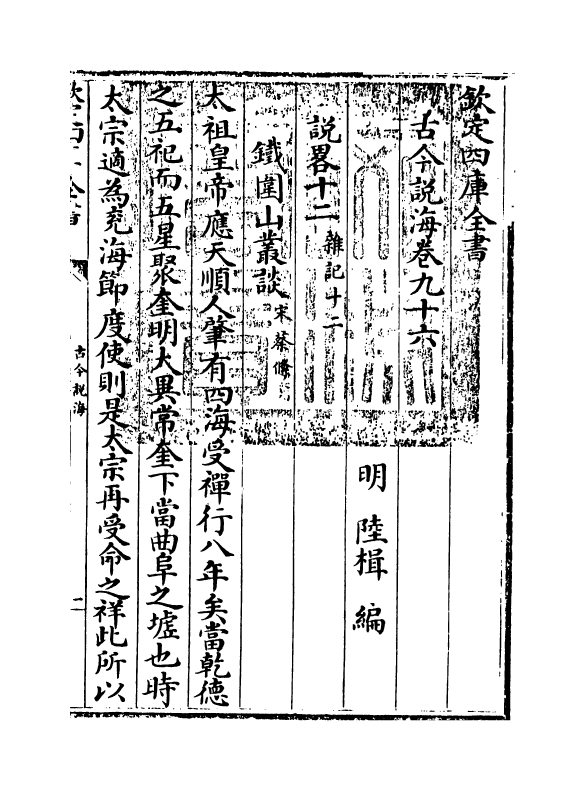 欽定四庫全書
古今說海卷九十六
明 陸楫 編
說畧十二 雜記十二
鐵圍山叢談 宋蔡絛
太祖皇帝應天順人肇有四海受禪行八年矣當乾德
之五祀而五星聚奎明大異常奎下當曲阜之墟也時
太宗適為兖海節度使則是太宗再受命之祥此所以
欽定四庫全書
古今說海
一